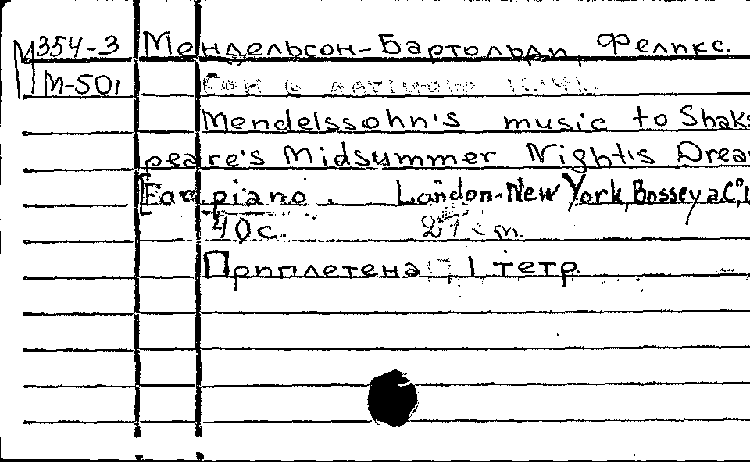 М354-3 Мендельсон-Бартольди, Феликс.
М-501 Сон в летнюю
Mendelssohn's music to Shaks
peare's Midsummer Night's Drea
[For piano. London-New York, Bossey a. C°,
40 с. 27 cm.
Приплетена 1 тетр.